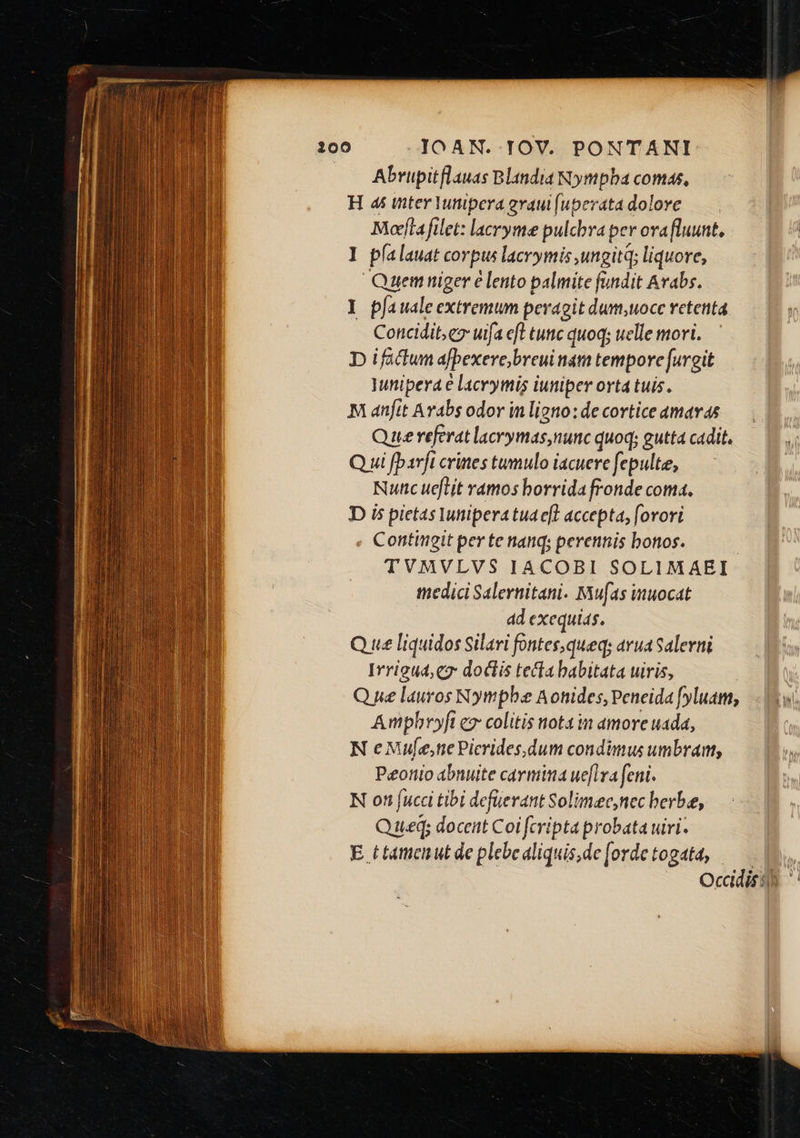 200 IOAN. IOV. PONTANI
Abrupit flauas Blandia Nympha comas,
H as inter Iunipera graui superata dolore
Mœsta silet: lacrymæ pulchra per ora fluunt.
I psa lauat corpus lacrymis, ungitq; liquore,
Quem niger è lento palmite fundit Arabs.
I psa uale extremum peragit dum, uoce retenta
Concidit, & uisa est tunc quoq; uelle mori.
D i factum aspexere, breui nam tempore surgit
Iunipera è lacrymis iuniper orta tuis.
M ansit Arabs odor in ligno: de cortice amaras
Quæ referat lacrymas, nunc quoq; gutta cadit.
Q ui sparsi crines tumulo iacuere sepultæ,
Nunc uestit ramos horrida fronde coma.
D is pietas Iunipera tua est accepta, sorori
Contingit per te nanq; perennis honos.
TVMVLVS IACOBI SOLIMAEI
medici Salernitani. Musas inuocat
ad exequias.
Q uæ liquidos Silari fontes, quæq; arua Salerni
Irrigua, & doctis tecta habitata uiris,
Q uæ lauros Nymphæ Aonides, Peneida syluam,
Amphrysi & colitis nota in amore uada,
N e Musæ, ne Pierides, dum condimus umbram,
Pæonio abnuite carmina uestra seni.
N on succi tibi defuerant Solimæe, nec herbæ,
Quæq; docent Coi scripta probata uiri.
E t tamen ut de plebe aliquis, de sorde togata,
Occidis